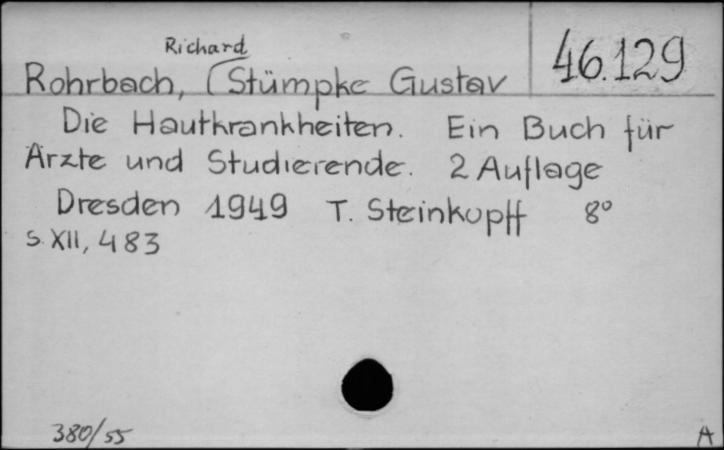 Richard
Rohrbach, (Stümpke Gustav
46.129
Die Hautkrankheiten. Ein Buch für
Ärzte und Studierende. 2 Auflage
Dresden 1949 T. Steinkopff 8°
S. XII, 483
380/55
A